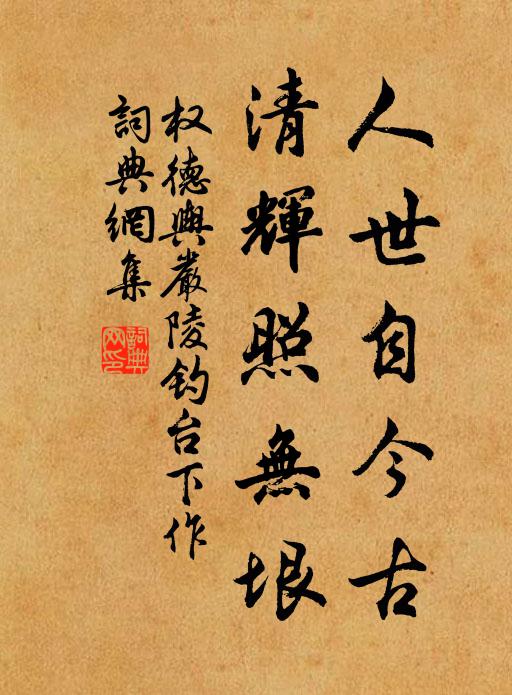 人世自今古
清輝照無垠
权德輿嚴陵釣台下作
詞典網集
詞典網印